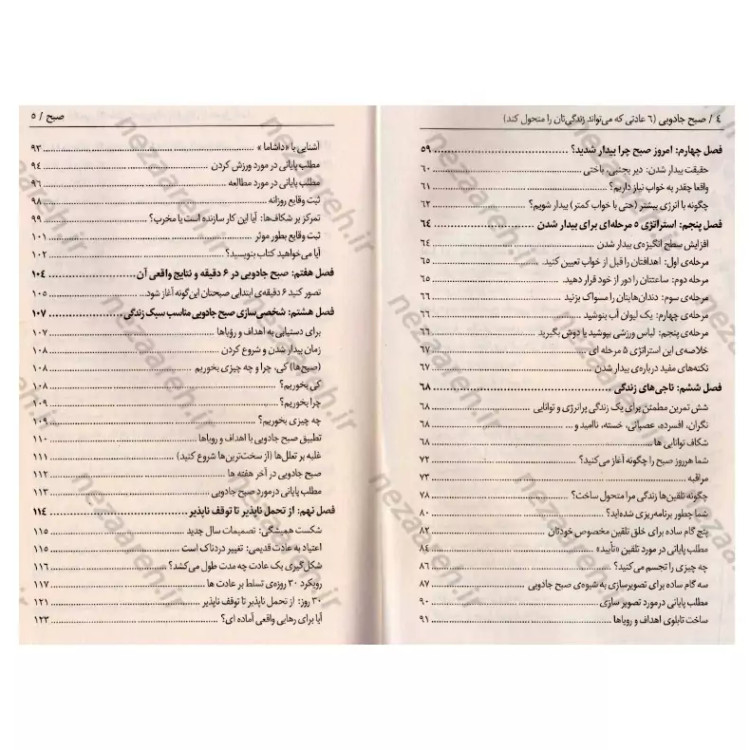 ۴ / صبح جادویی (۶ عادتی که می‌تواند زندگی‌تان را متحول کند)
فصل چهارم: امروز صبح چرا بیدار شدید؟ ۵۹
حقیقت بیدار شدن: دیر بجنبی، باختی ۶۰
واقعا چقدر به خواب نیاز داریم؟ ۶۱
چگونه با انرژی بیشتر (حتی با خواب کمتر) بیدار شویم؟ ۶۲
فصل پنجم: استراتژی ۵ مرحله‌ای برای بیدار شدن ۶۴
افزایش سطح انگیزه‌ی بیدار شدن ۶۴
مرحله‌ی اول: اهدافتان را قبل از خواب تعیین کنید. ۶۵
مرحله‌ی دوم: ساعتتان را دور از خود قرار دهید. ۶۵
مرحله‌ی سوم: دندان‌هایتان را مسواک بزنید ۶۶
مرحله‌ی چهارم: یک لیوان آب بنوشید ۶۶
مرحله‌ی پنجم: لباس ورزشی بپوشید یا دوش بگیرید ۶۶
خلاصه‌ی این استراتژی ۵ مرحله ای ۶۷
نکته‌های مفید درباره‌ی بیدار شدن ۶۷
فصل ششم: ناجی‌های زندگی ۶۸
شش تمرین مطمئن برای یک زندگی پرانرژی و توانایی ۶۸
نگران، افسرده، عصبانی، خسته، ناامید و ... ۶۸
شکاف توانایی ها ۶۸
شما هرروز صبح را چگونه آغاز می‌کنید؟ ۷۲
مراقبه ۷۳
چگونه تلقین‌ها زندگی مرا متحول ساخت؟ ۷۸
شما چطور برنامه‌ریزی شده‌اید؟ ۸۰
پنج گام ساده برای خلق تلقین مخصوص خودتان ۸۲
مطلب پایانی در مورد تلقین «تأیید» ۸۴
چه چیزی را تجسم می‌کنید؟ ۸۶
سه گام ساده برای تصویرسازی به شیوه‌ی صبح جادویی ۸۷
مطلب پایانی درمورد تصویر سازی ۹۰
ساخت تابلوی اهداف و رویاها ۹۱
صبح / ۵
آشنایی با «داشاما» ۹۳
مطلب پایانی در مورد ورزش کردن ۹۴
مطلب پایانی در مورد مطالعه ۹۶
ثبت وقایع روزانه ۹۸
تمرکز بر شکاف‌ها: آیا این کار سازنده است یا مخرب؟ ۹۹
ثبت وقایع بطور موثر ۱۰۱
آیا می‌خواهید کتاب بنویسید؟ ۱۰۲
فصل هفتم: صبح جادویی در ۶ دقیقه و نتایج واقعی آن ۱۰۴
تصور کنید ۶ دقیقه‌ی ابتدایی صبحتان این‌گونه آغاز شود. ۱۰۵
فصل هشتم: شخصی‌سازی صبح جادویی مناسب سبک زندگی ۱۰۷
برای دستیابی به اهداف و رؤیاها ۱۰۷
زمان بیدار شدن و شروع کردن ۱۰۸
(صبح‌ها) کی، چرا و چه چیزی بخوریم ۱۰۸
کی بخوریم؟ ۱۰۸
چرا بخوریم؟ ۱۰۹
چه چیزی بخوریم؟ ۱۰۹
تطبیق صبح جادویی با اهداف و رویاها ۱۱۰
غلبه بر تعلل‌ها (از سخت‌ترین‌ها شروع کنید) ۱۱۱
صبح جادویی در آخر هفته ها ۱۱۲
مطلب پایانی درمورد صبح جادویی ۱۱۳
فصل نهم: از تحمل ناپذیر تا توقف ناپذیر ۱۱۴
شکست همیشگی: تصمیمات سال جدید ۱۱۵
اعتیاد به عادت قدیمی: تغییر دردناک است ۱۱۵
شکل‌گیری یک عادت چه مدت طول می‌کشد؟ ۱۱۶
رویکرد ۳۰ روزه‌ی تسلط بر عادت ها ۱۱۷
۳۰ روز: از تحمل ناپذیر تا توقف ناپذیر ۱۲۱
آیا برای رهایی واقعی آماده ای؟ ۱۲۳
nezaareh.ir